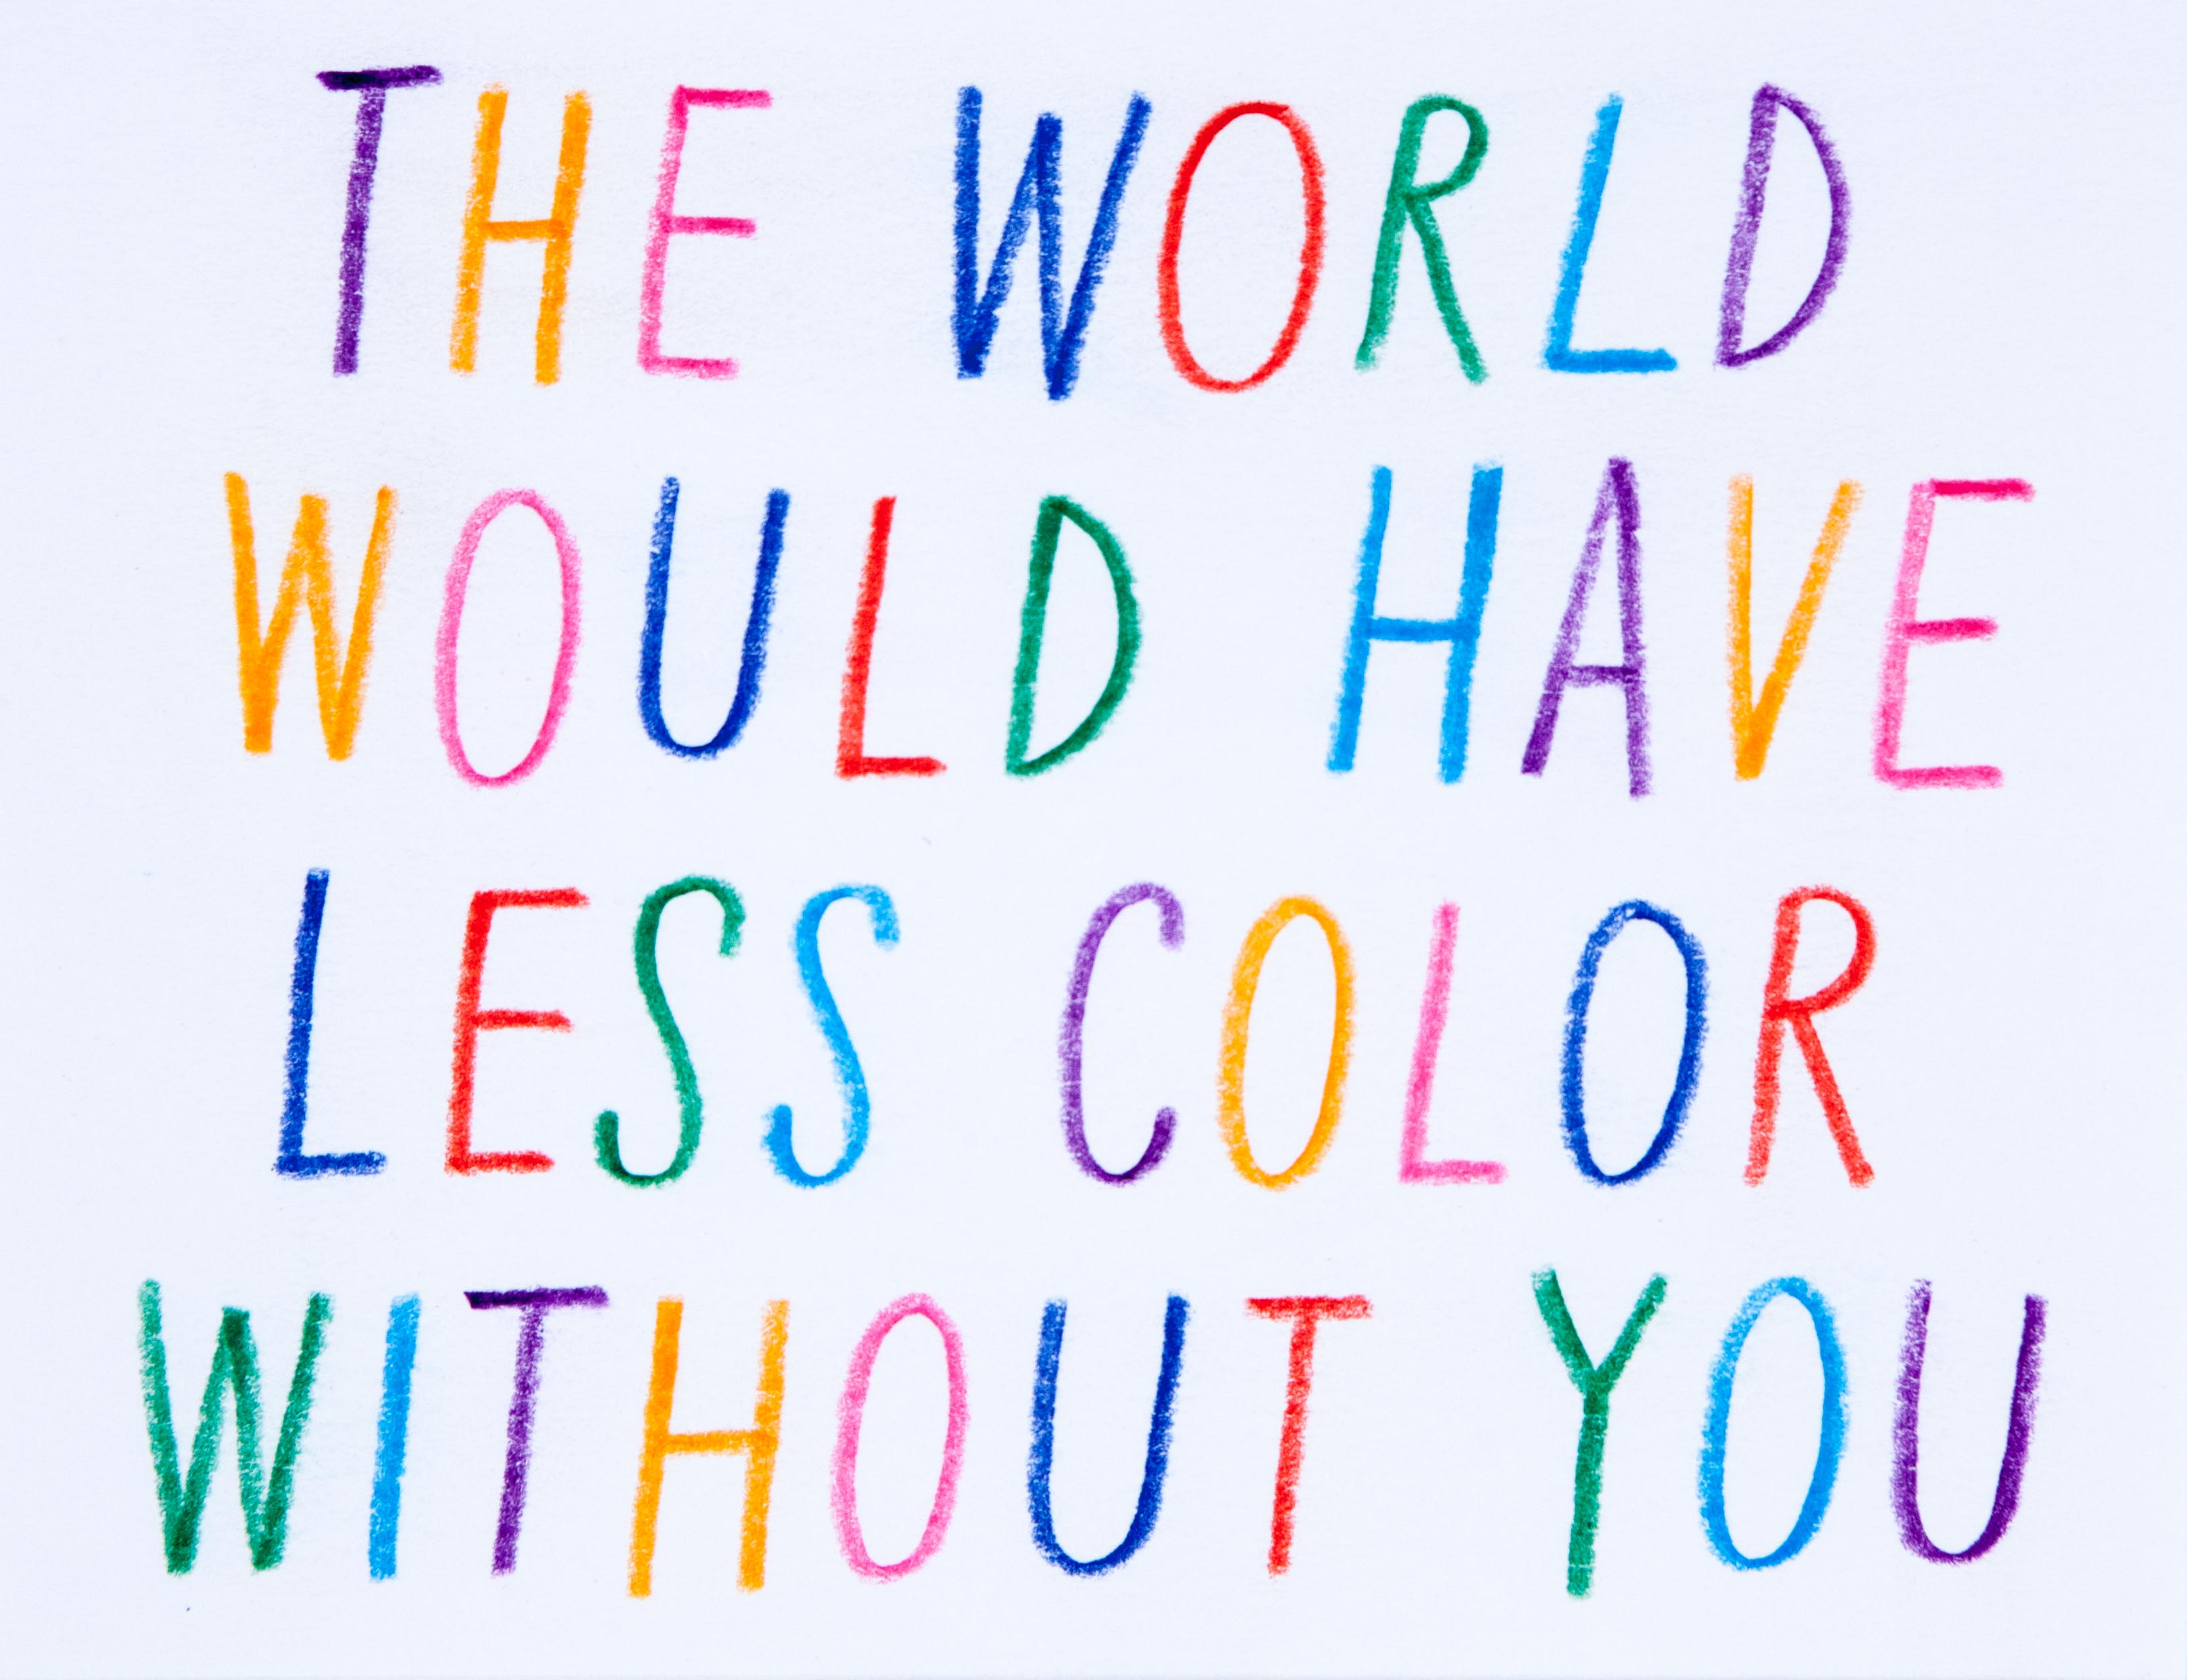 THE WORLD
WOULD HAVE
LESS COLOR
WITHOUT YOU